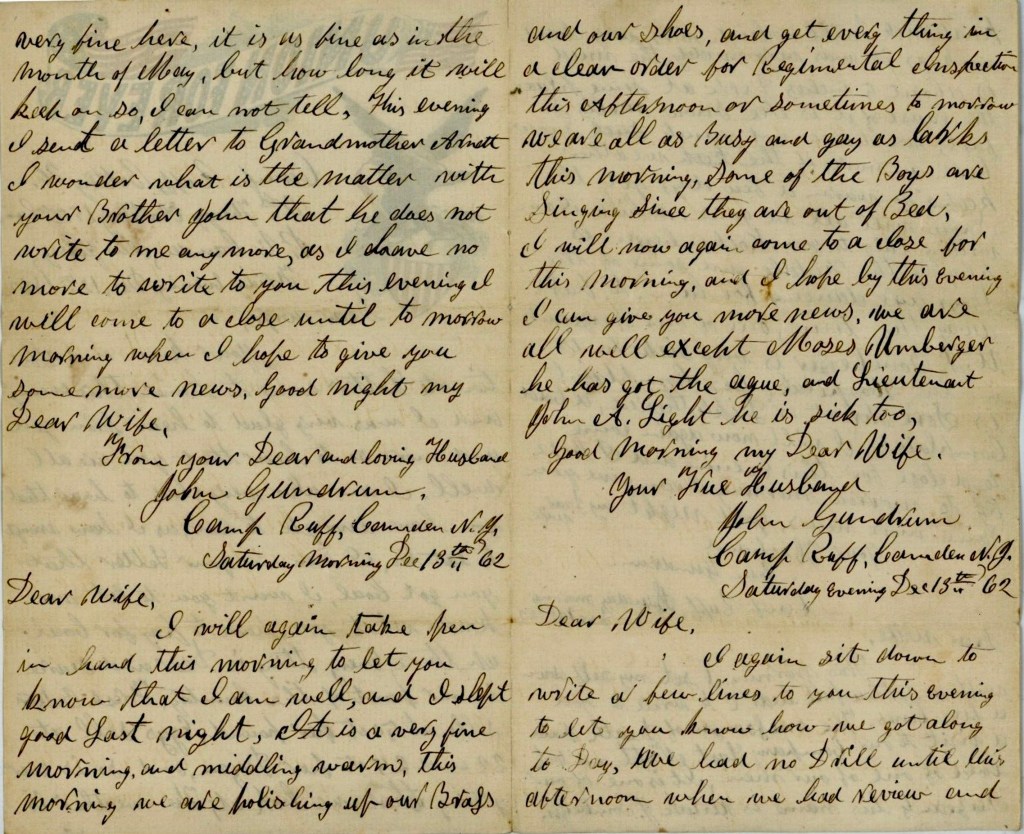 very fine here, it is as fine as in the
month of May, but how long it will
keep on so, I can not tell, This evening
I send a letter to Grandmother Arnett
I wonder what is the matter with
your Brother John that he does not
write to me anymore, as I have no
more to write to you this evening I
will come to a close until to morrow
morning when I hope to give you
some more news, Good night my
Dear Wife,
From your Dear and loving Husband
John Gundrum.
Camp Ruff, Camden N. J.
Saturday Morning Dec 13th 62
Dear Wife,
I will again take pen
in hand this morning to let you
know that I am well, and I slept
good Last night, It is a very fine
morning, and middling warm, this
morning we are polishing up our Brass
and our shoes, and get every thing in
a clean order for Regimental Inspection
this Afternoon or sometimes to morrow
we are all as Busy and gay as larks
this morning, some of the Boys are
Singing since they are out of Bed,
I will now again come to a close for
this morning, and I hope by this Evening
I can give you more news, we are
all well except Moses Umberger
he has got the ague, and Lieutenant
John A. Light he is sick too,
Good Morning my Dear Wife.
Your True Husband
John Gundrum
Camp Ruff, Camden N. J.
Saturday Evening Dec 13th 62
Dear Wife,
I again sit down to
write a few lines to you this Evening
to let you know how we got along
to Day, We had no Drill until this
afternoon when we had review and